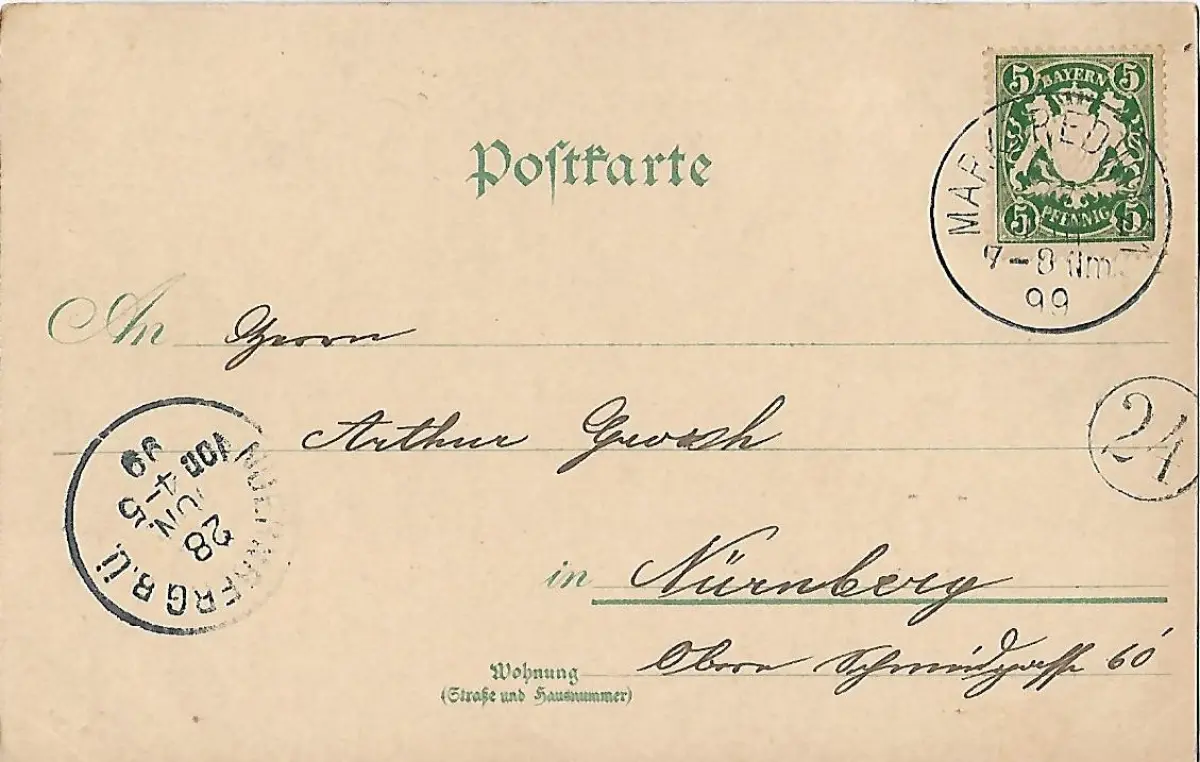 5 BAYERN 5
5 PFENNIG 5
7-8 Nm.
99
Postkarte
An Herrn
Arthur Grosch
24
NUERNBERG B.Ü.
28
JUN.
4-5
Von
99
in Nürnberg
Obere Schmiedgasse 60
Wohnung
(Straße und Hausnummer)